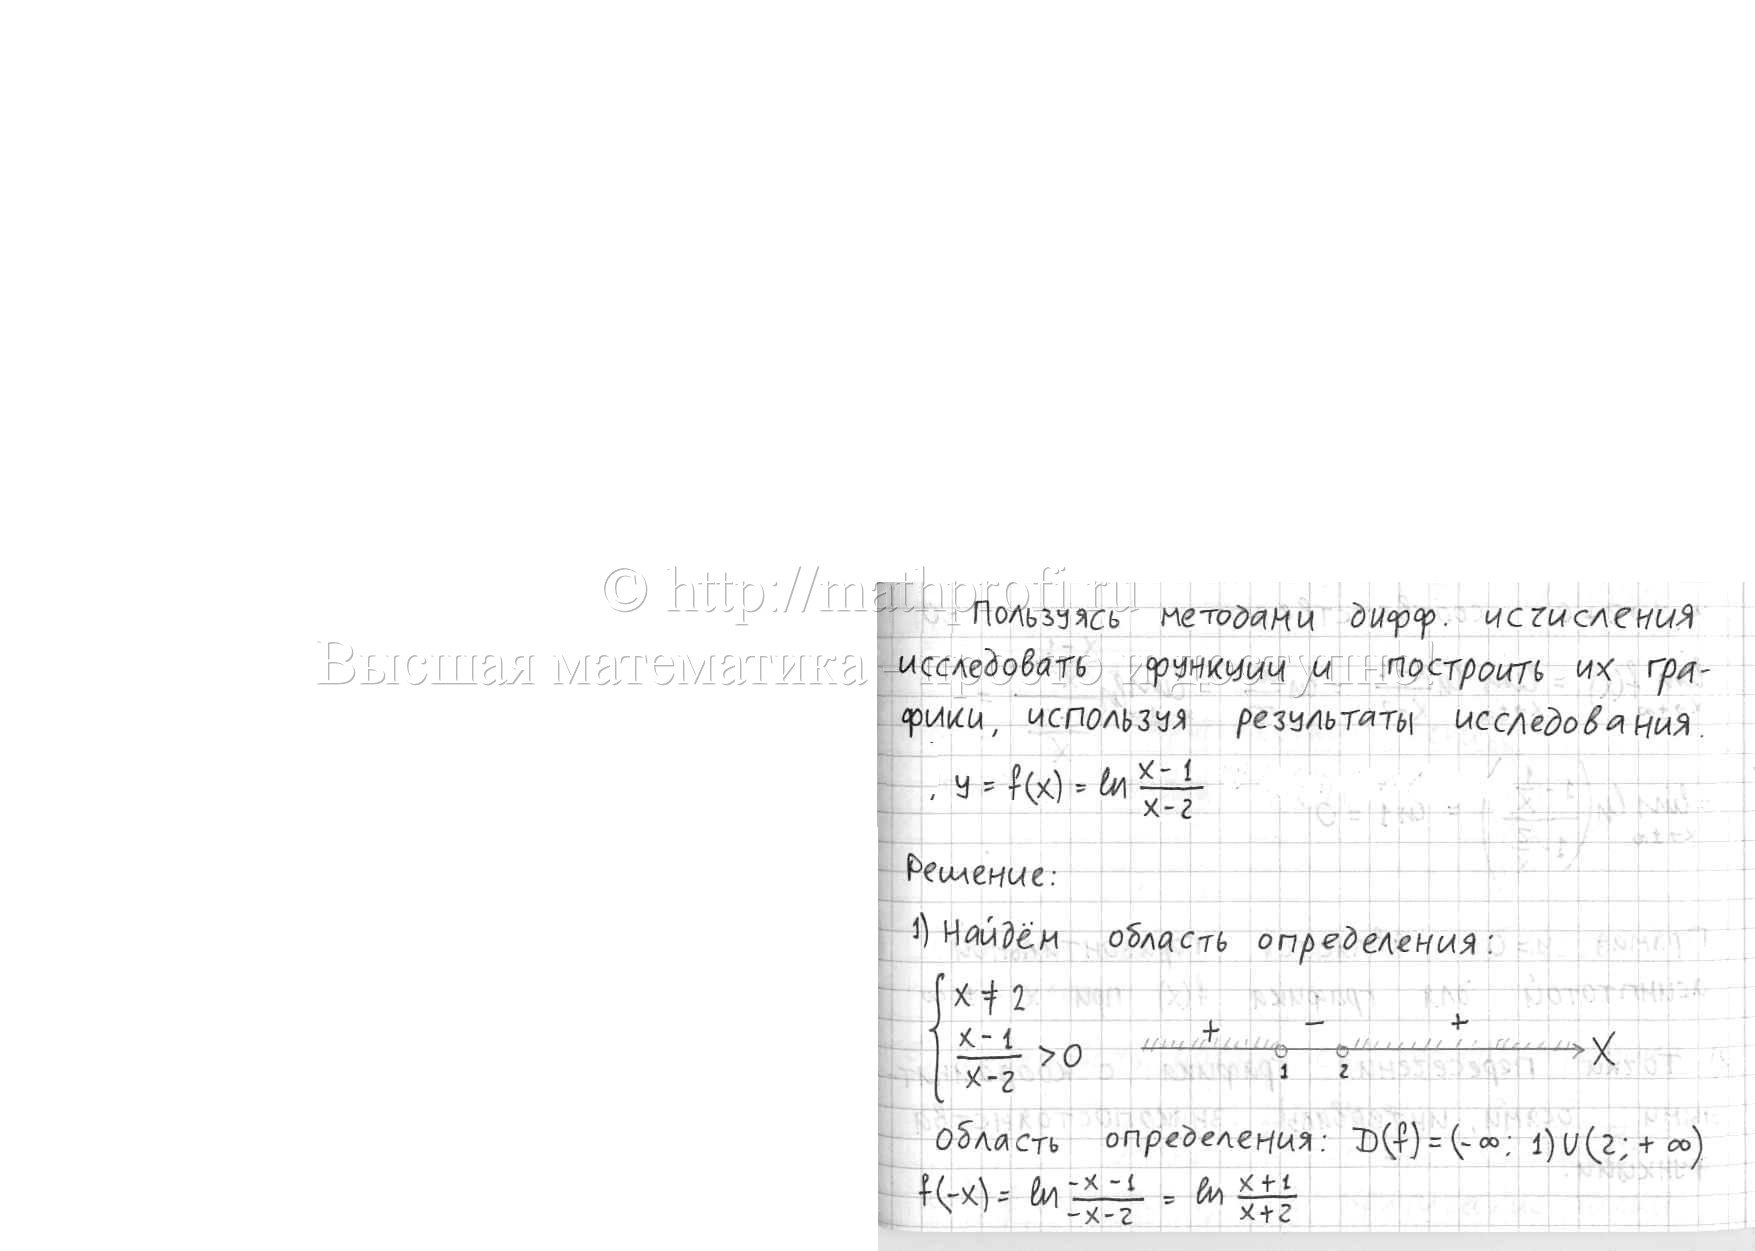 © http://mathprofi.ru
Высшая математика – просто и доступно!
Пользуясь методами дифф. исчисления
исследовать функции и построить их гра-
фики, используя результаты исследования.
y = f(x) = ln (x-1)/(x-2)
Решение:
1) Найдём область определения:
{ x ≠ 2
(x-1)/(x-2) > 0
+ − +
1 2 X
область определения: D(f) = (-∞; 1) U (2; +∞)
f(-x) = ln (-x-1)/(-x-2) = ln (x+1)/(x+2)